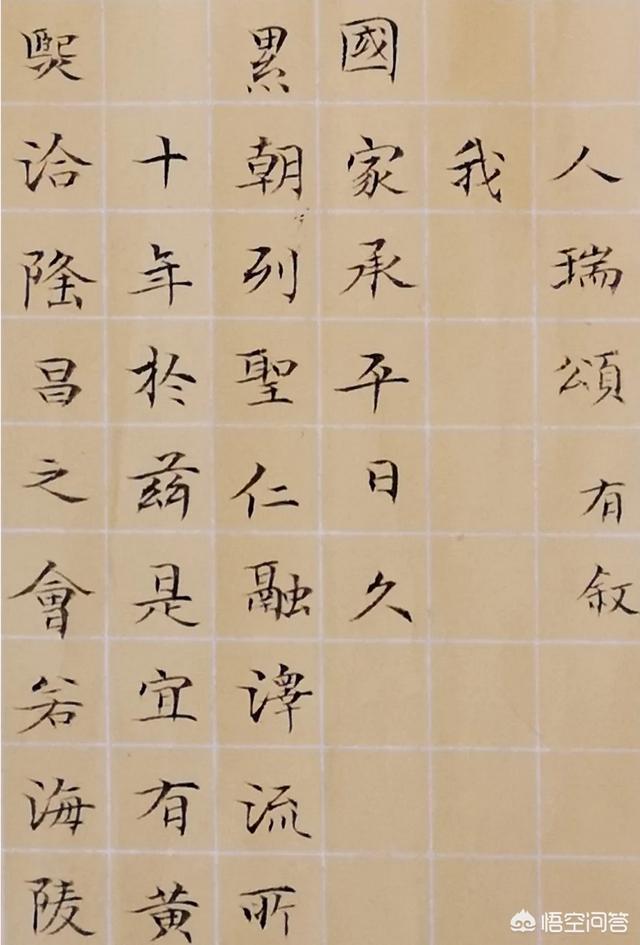 人瑞頌有敘
我
國家承平日久
累朝列聖仁融澤流所
十年於茲是宜有黃
熙洽隆昌之會若海陵
悟空问答